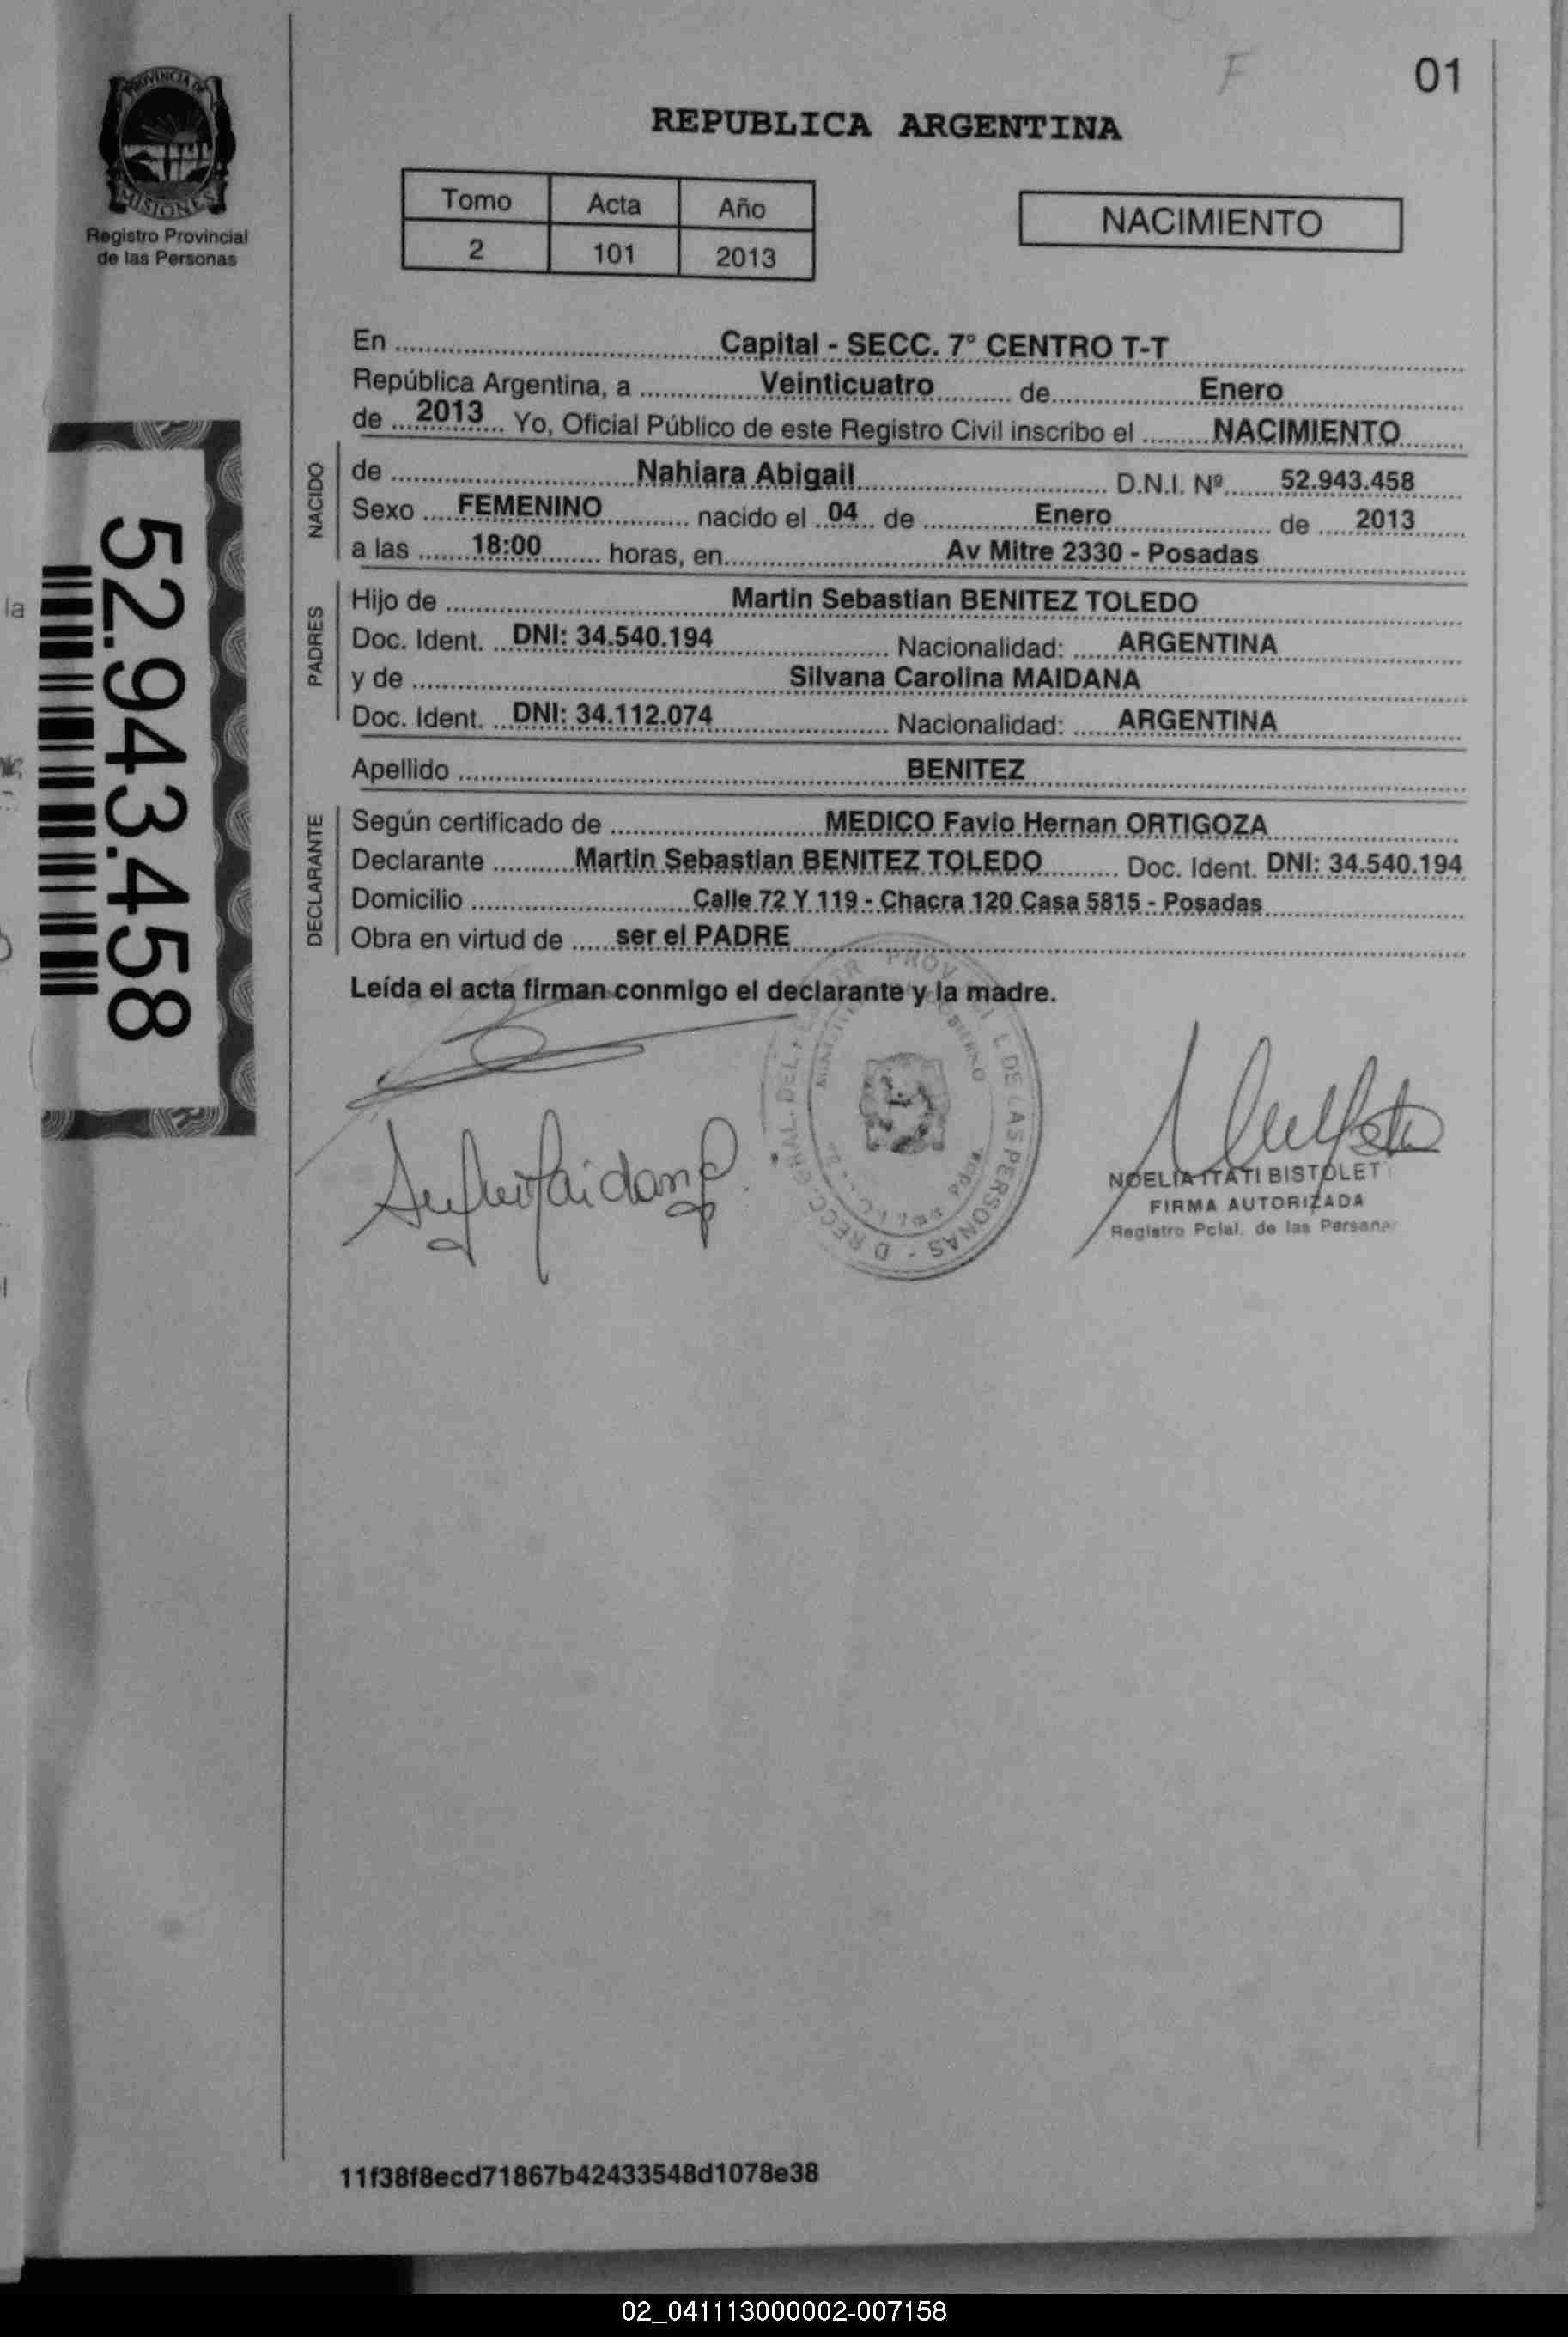 01
F
REPUBLICA ARGENTINA
PROVINCIA DE
MISIONES
Registro Provincial
de las Personas
Tomo Acta Año
2 101 2013
NACIMIENTO
En Capital - SECC. 7° CENTRO T-T
República Argentina, a Veinticuatro de Enero
de 2013 Yo, Oficial Público de este Registro Civil inscribo el NACIMIENTO
NACIDO
de Nahiara Abigail D.N.I. Nº 52.943.458
Sexo FEMENINO nacido el 04 de Enero de 2013
a las 18:00 horas, en Av Mitre 2330 - Posadas
PADRES
Hijo de Martin Sebastian BENITEZ TOLEDO
Doc. Ident. DNI: 34.540.194 Nacionalidad: ARGENTINA
y de Silvana Carolina MAIDANA
Doc. Ident. DNI: 34.112.074 Nacionalidad: ARGENTINA
Apellido BENITEZ
DECLARANTE
Según certificado de MEDICO Favio Hernan ORTIGOZA
Declarante Martin Sebastian BENITEZ TOLEDO Doc. Ident. DNI: 34.540.194
Domicilio Calle 72 Y 119 - Chacra 120 Casa 5815 - Posadas
Obra en virtud de ser el PADRE
Leída el acta firman conmigo el declarante y la madre.
52.943.458
la
DE LAS PERSONAS
NOELIA ITATI BISTOLET
FIRMA AUTORIZADA
Registro Pcial. de las Personas
11f38f8ecd71867b42433548d1078e38
02_041113000002-007158